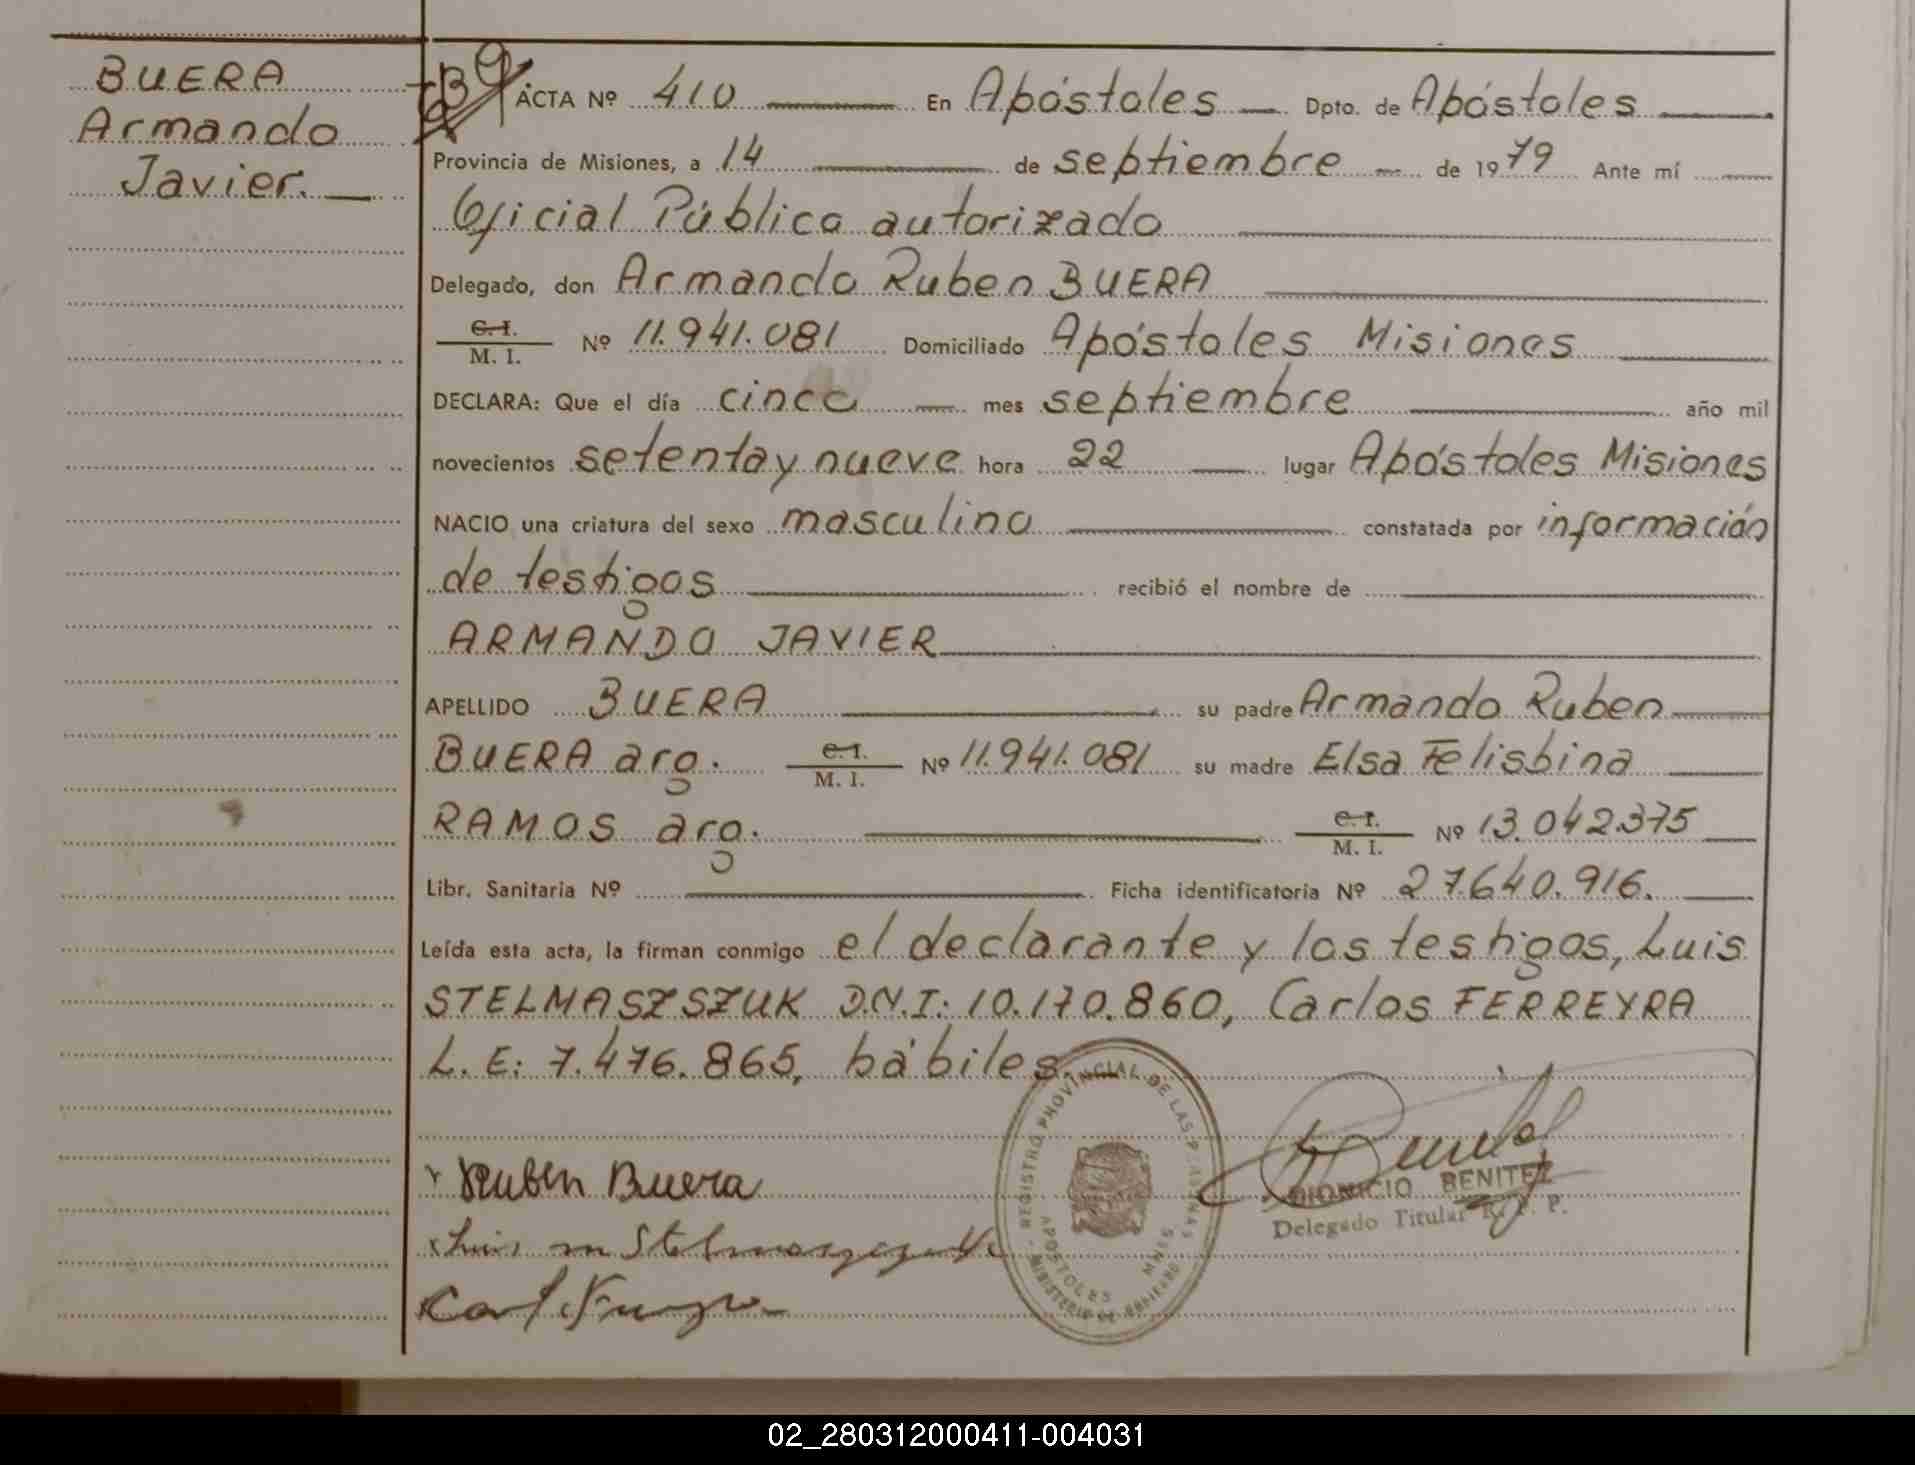 BUERA
Armando
Javier.
ACTA Nº 410 En Apóstoles Dpto. de Apóstoles
Provincia de Misiones, a 14 de septiembre de 1979 Ante mí
Oficial Público autorizado
Delegado, don Armando Ruben BUERA
C. I.
M. I. Nº 11.941.081 Domiciliado Apóstoles Misiones
DECLARA: Que el día cinco mes septiembre año mil
novecientos setenta y nueve hora 22 lugar Apóstoles Misiones
NACIO una criatura del sexo masculino constatada por información
de testigos recibió el nombre de
ARMANDO JAVIER
APELLIDO BUERA su padre Armando Ruben
BUERA arg. C. I. M. I. Nº 11.941.081 su madre Elsa Felisbina
RAMOS arg. C. I. M. I. Nº 13.042.375
Libr. Sanitaria Nº Ficha identificatoria Nº 27.640.916.
Leída esta acta, la firman conmigo el declarante y los testigos, Luis
STELMASZSZUK D.N.I: 10.170.860, Carlos FERREYRA
L.E: 7.476.865, hábiles.
Ruben Buera
DIONICIO BENITEZ
Delegado Titular R. P. P.
REGISTRO PROVINCIAL DE LAS PERSONAS
APOSTOLES MNES
MINISTERIO DE GOBIERNO
02_280312000411-004031